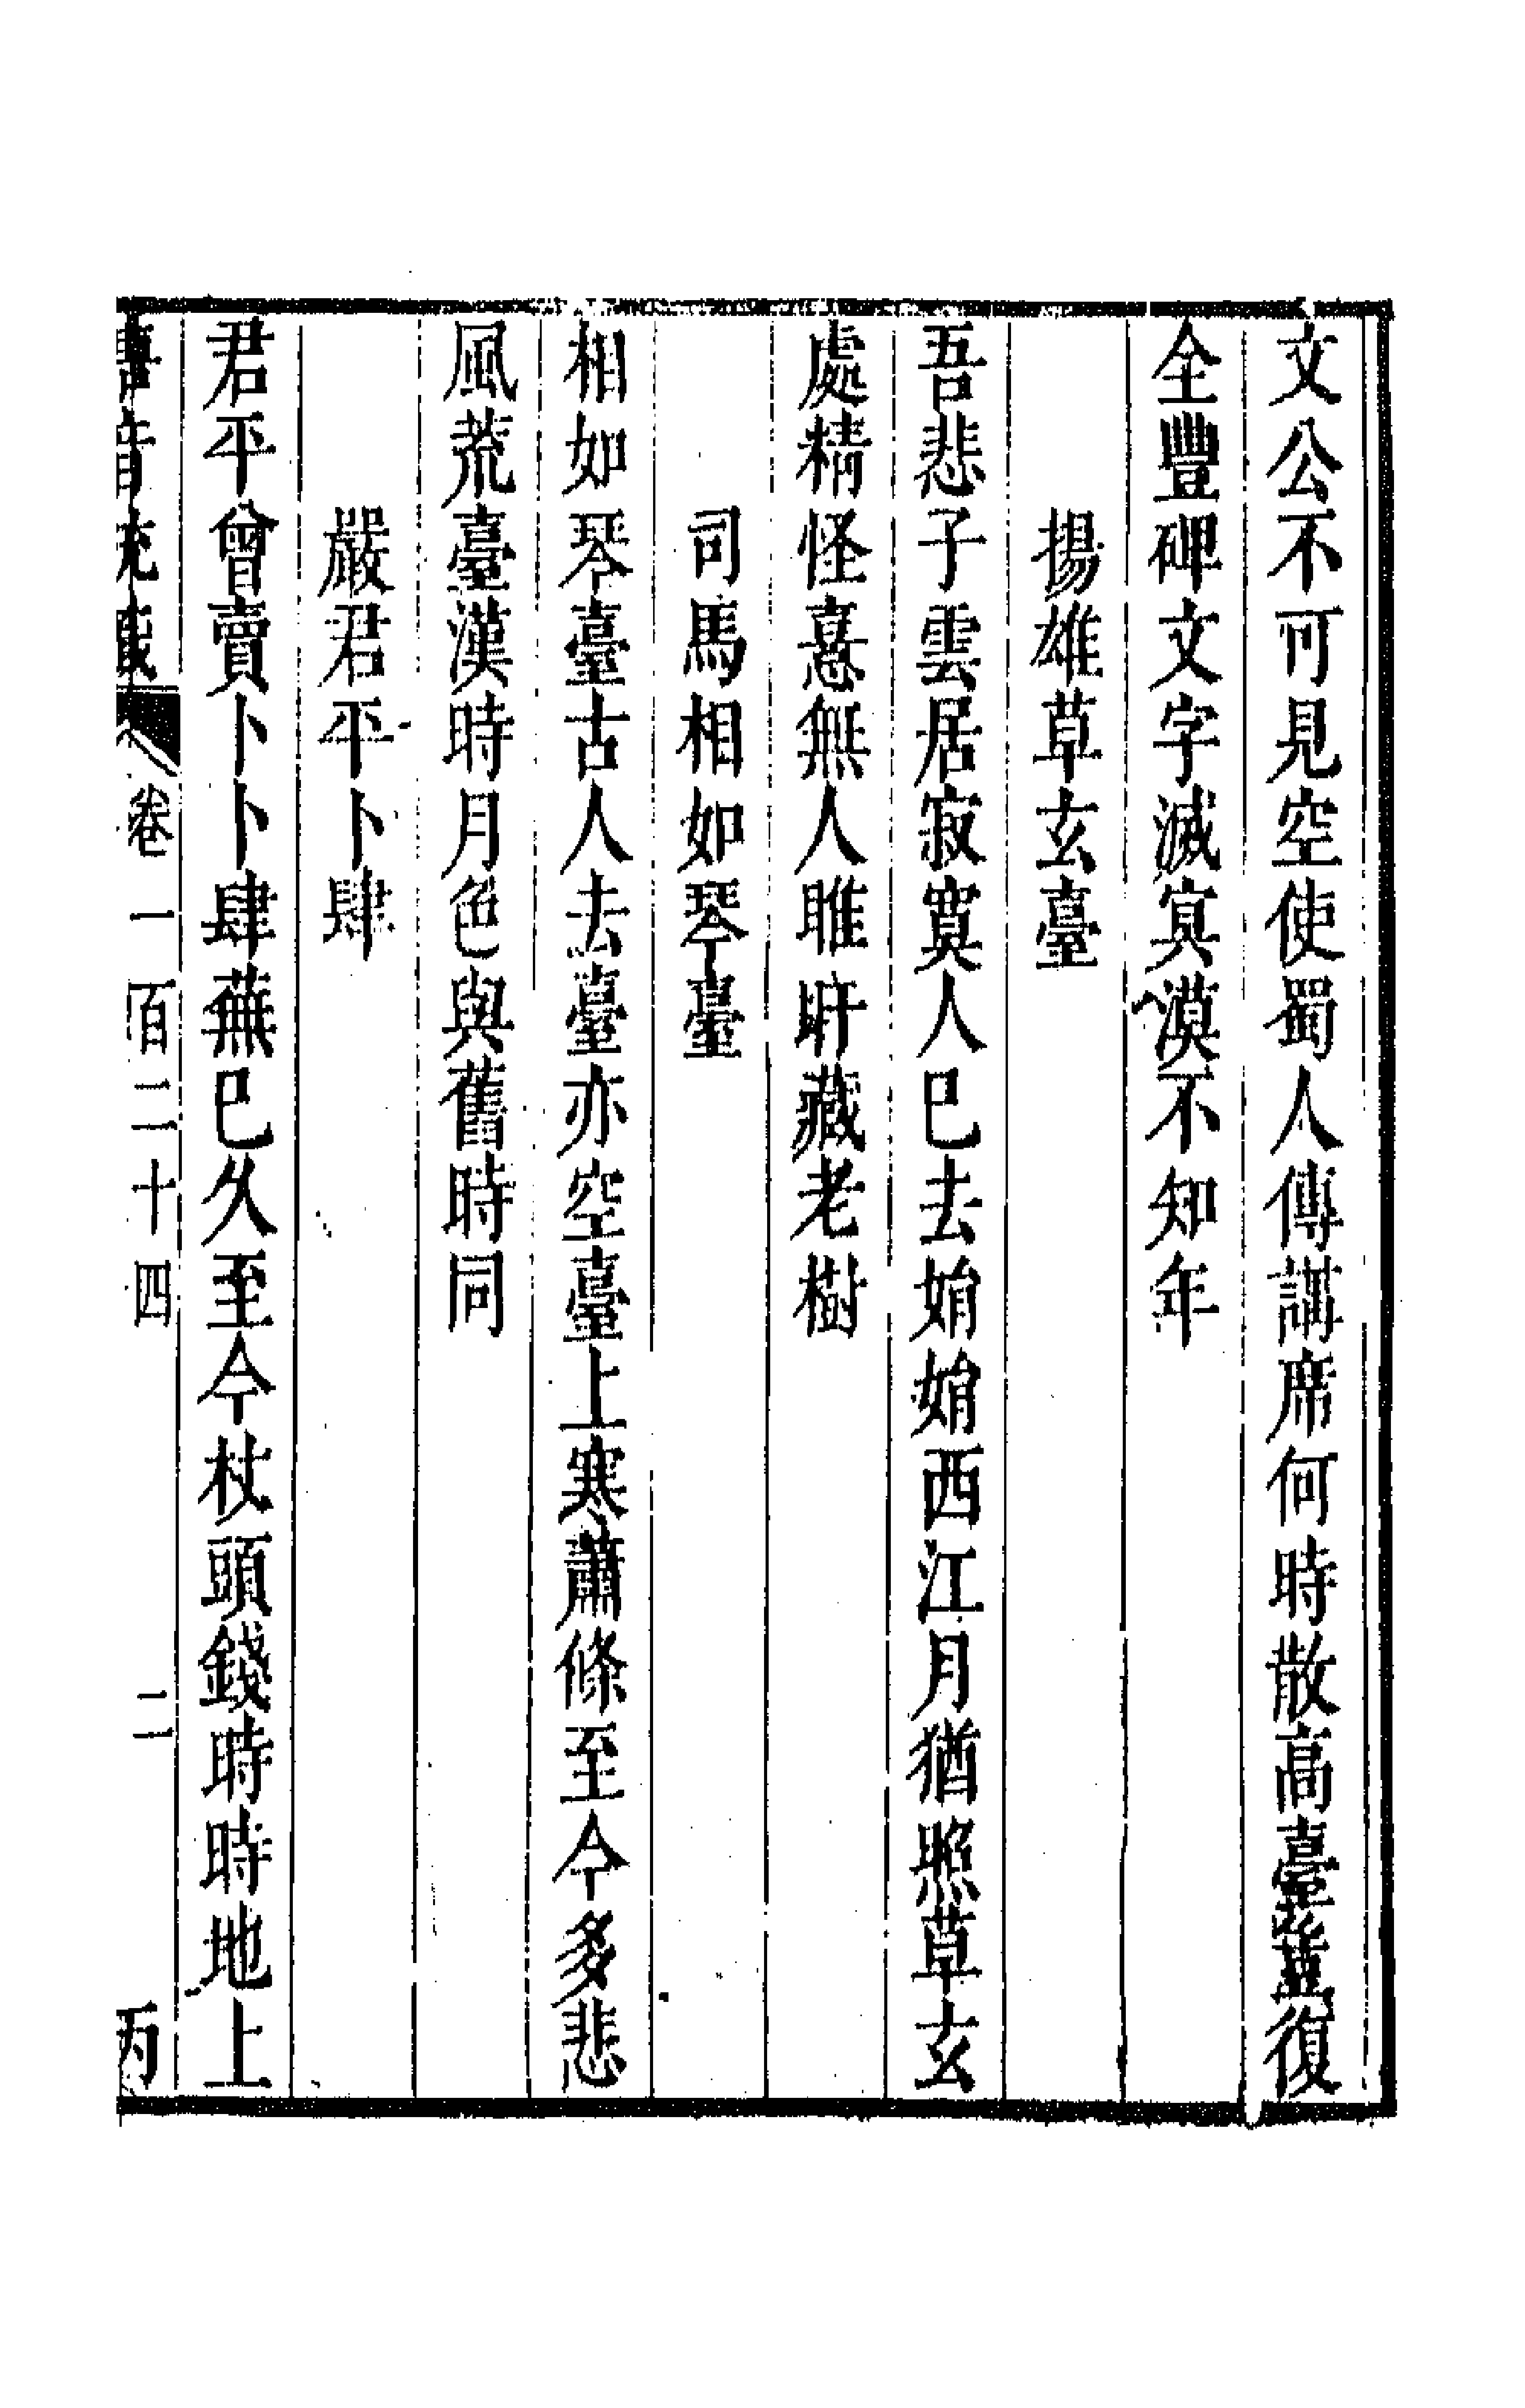 文公不可見空使蜀人傳講席何時散高臺豈復
全豐碑文字滅冥漠不知年
揚雄草玄臺
吾悲子雲居寂寞人已去娟娟西江月猶照草玄
處精怪憙無人睢盱藏老樹
司馬相如琴臺
相如琴臺古人去臺亦空臺上寒蕭條至今多悲
風荒臺漢時月色與舊時同
嚴君平卜肆
君平曾賣卜卜肆蕪已久至今杖頭錢時時地上
唐音統籤 卷一百二十四 二 丙